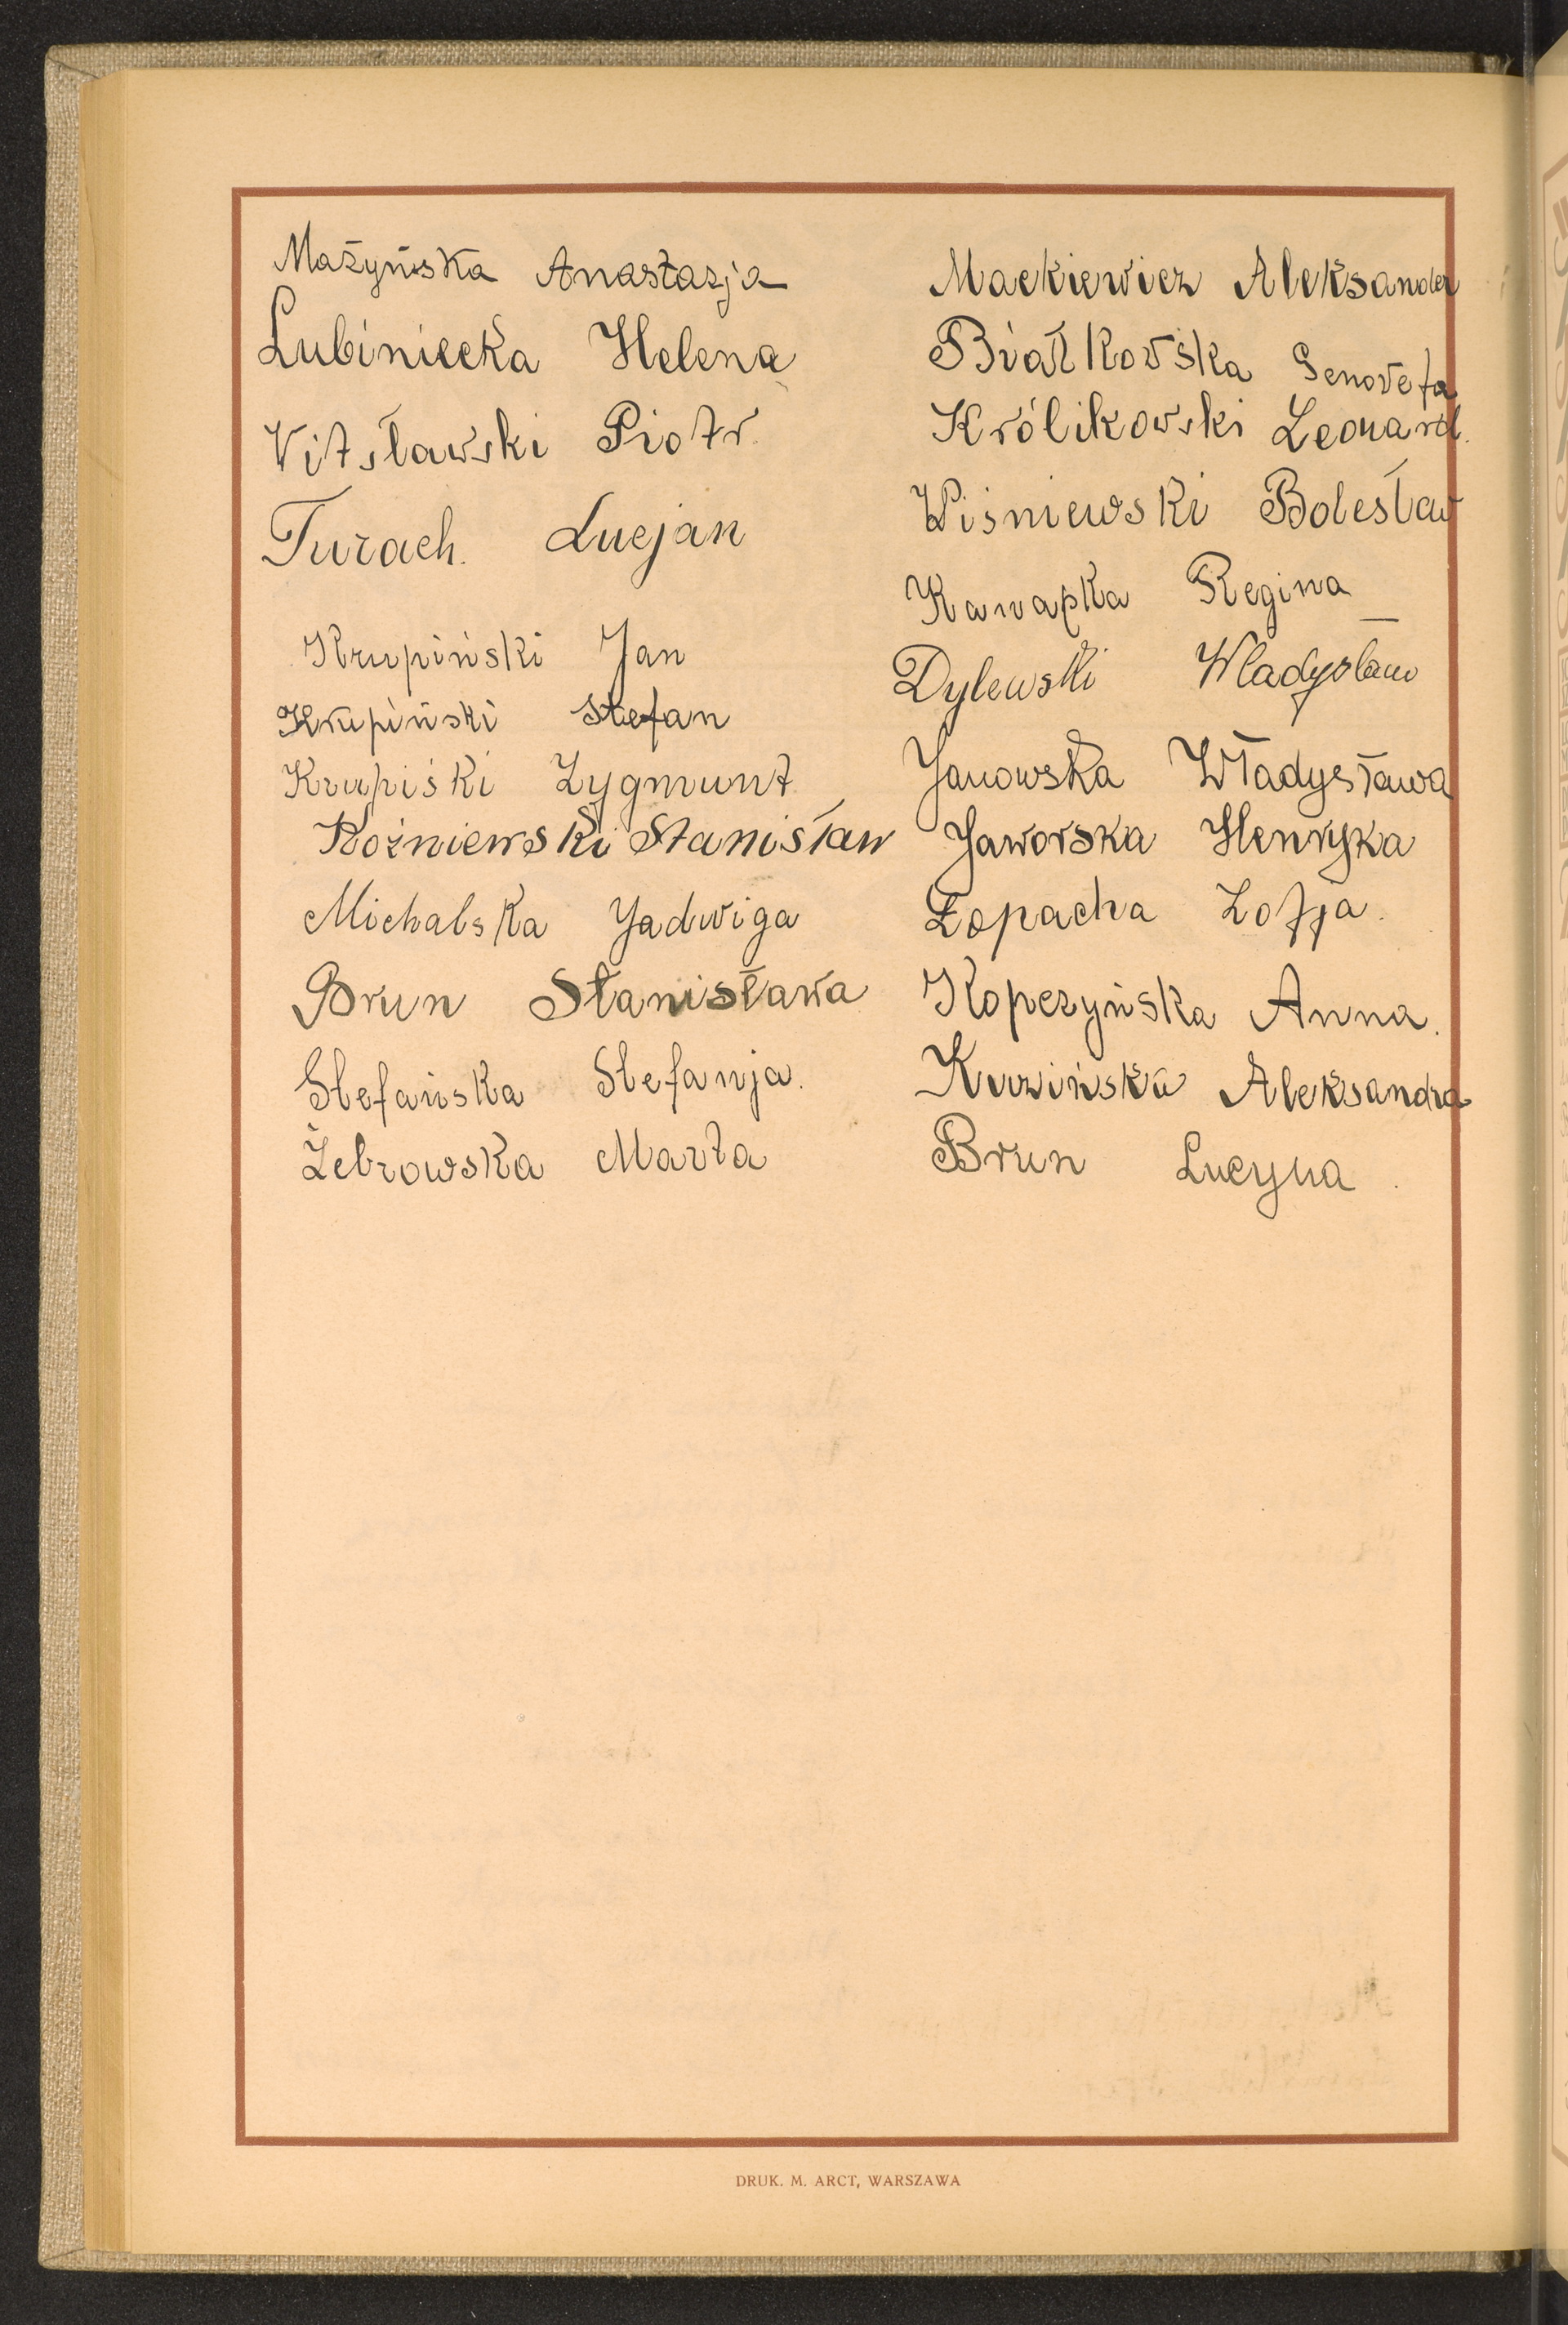 Mażyńska Anastazja
Lubiniecka Helena
Vitsławski Piotr.
Turach. Lucjan
Krupiński Jan
Krupiński Stefan
Krupiśki Zygmunt
Koźniewski Stanisław
Michalska Jadwiga
Brun Stanisława
Stefańska Stefanja.
Żebrowska Marta
Mackiewicz Aleksander
Białkowska Genowefa
Królikowski Leonard.
Wiśniewski Bolesław
Kanapka Regina
Dylewski Władysław
Janowska Władysława
Jaworska Henryka
Łopacha Zofja.
Kopczyńska Anna.
Aleksandra
Brun Lucyna.
DRUK. M. ARCT, WARSZAWA